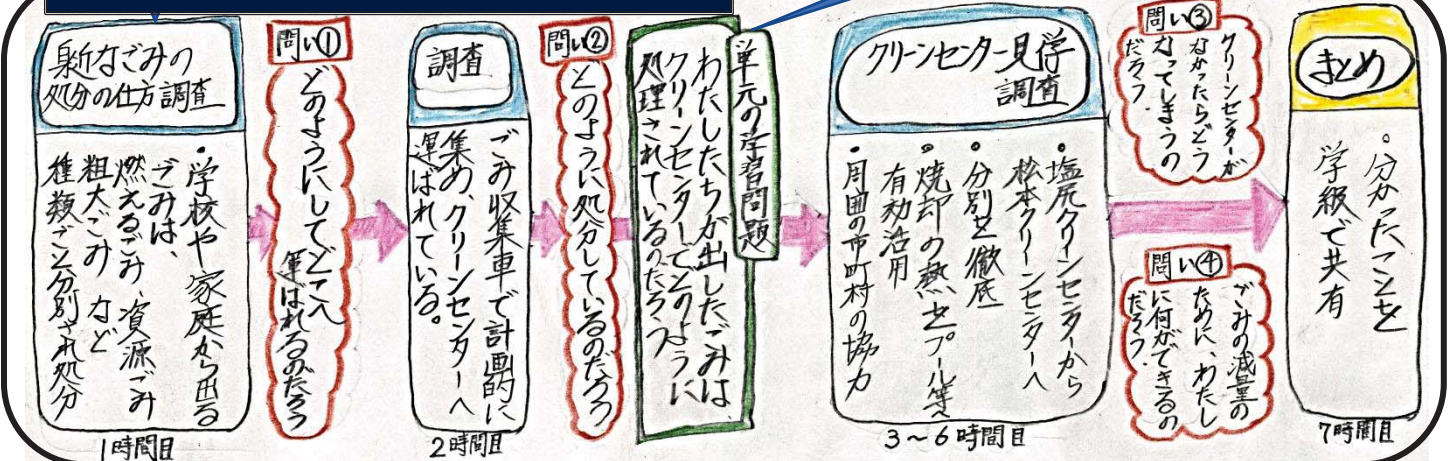 身近なごみの
処分の仕方調査
・学校や家庭から出る
ごみは、
燃えるごみ、資源ごみ
粗大ごみ など
種類ごと分別され処分
1時間目
問い①
どのようにしてどこへ
運ばれるのだろう
調査
ごみ収集車で計画的に
集め、クリーンセンターへ
運ばれている。
2時間目
問い②
どのように処分しているのだろう
単元の学習問題
わたしたちが出したごみは、
クリーンセンターでどのように
処理されているのだろう
クリーンセンター見学
調査
・塩尻クリーンセンターから
松本クリーンセンターへ
・分別を徹底
・焼却の熱をプール等へ
有効活用
・周囲の市町村の協力
3~6時間目
問い③
クリーンセンターが
なかったらどう
なってしまうの
だろう。
問い④
ごみの減量の
ために、わたし
に何ができるの
だろう。
まとめ
・分かったことを
学級で共有
7時間目